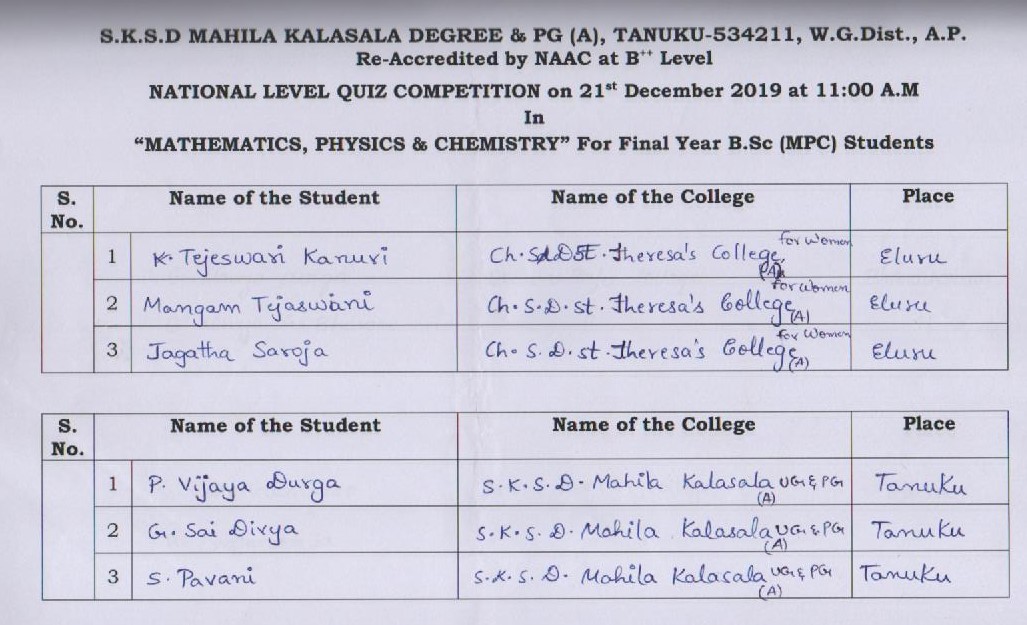 S.K.S.D MAHILA KALASALA DEGREE & PG (A), TANUKU-534211, W.G.Dist., A.P.
Re-Accredited by NAAC at B++ Level
NATIONAL LEVEL QUIZ COMPETITION on 21st December 2019 at 11:00 A.M
In
“MATHEMATICS, PHYSICS & CHEMISTRY” For Final Year B.Sc (MPC) Students
S. No. Name of the Student Name of the College Place
1 K. Tejeswari Kanuri Ch. S.D. St. Theresa's College for Women (A) Eluru
2 Mangam Tejaswani Ch. S. D. st. Theresa's College for Women (A) Eluru
3 Jagatha Saroja Ch. S. D. st. Theresa's College for Women (A) Eluru
S. No. Name of the Student Name of the College Place
1 P. Vijaya Durga S. K. S. D. Mahila Kalasala UG & PG (A) Tanuku
2 G. Sai Divya S. K. S. D. Mahila Kalasala UG & PG (A) Tanuku
3 S. Pavani S. K. S. D. Mahila Kalasala UG & PG (A) Tanuku